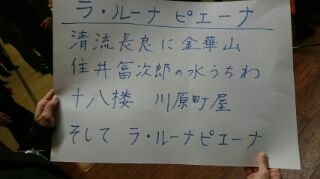 ラ・ルーナ ピエーナ
清流長良に金華山
住井冨次郎の水うちわ
十八楼 川原町屋
そして ラ・ルーナピエーナ